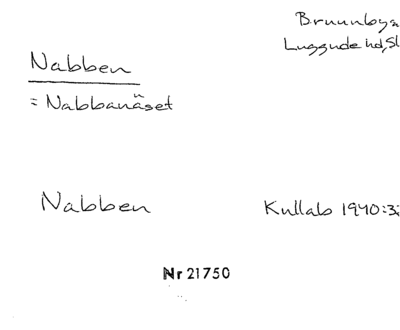 Brunnby
Luggude hd, Sk
Nabben
= Nabbanäset
Nabben
Kullab 1940:3
Nr 21750